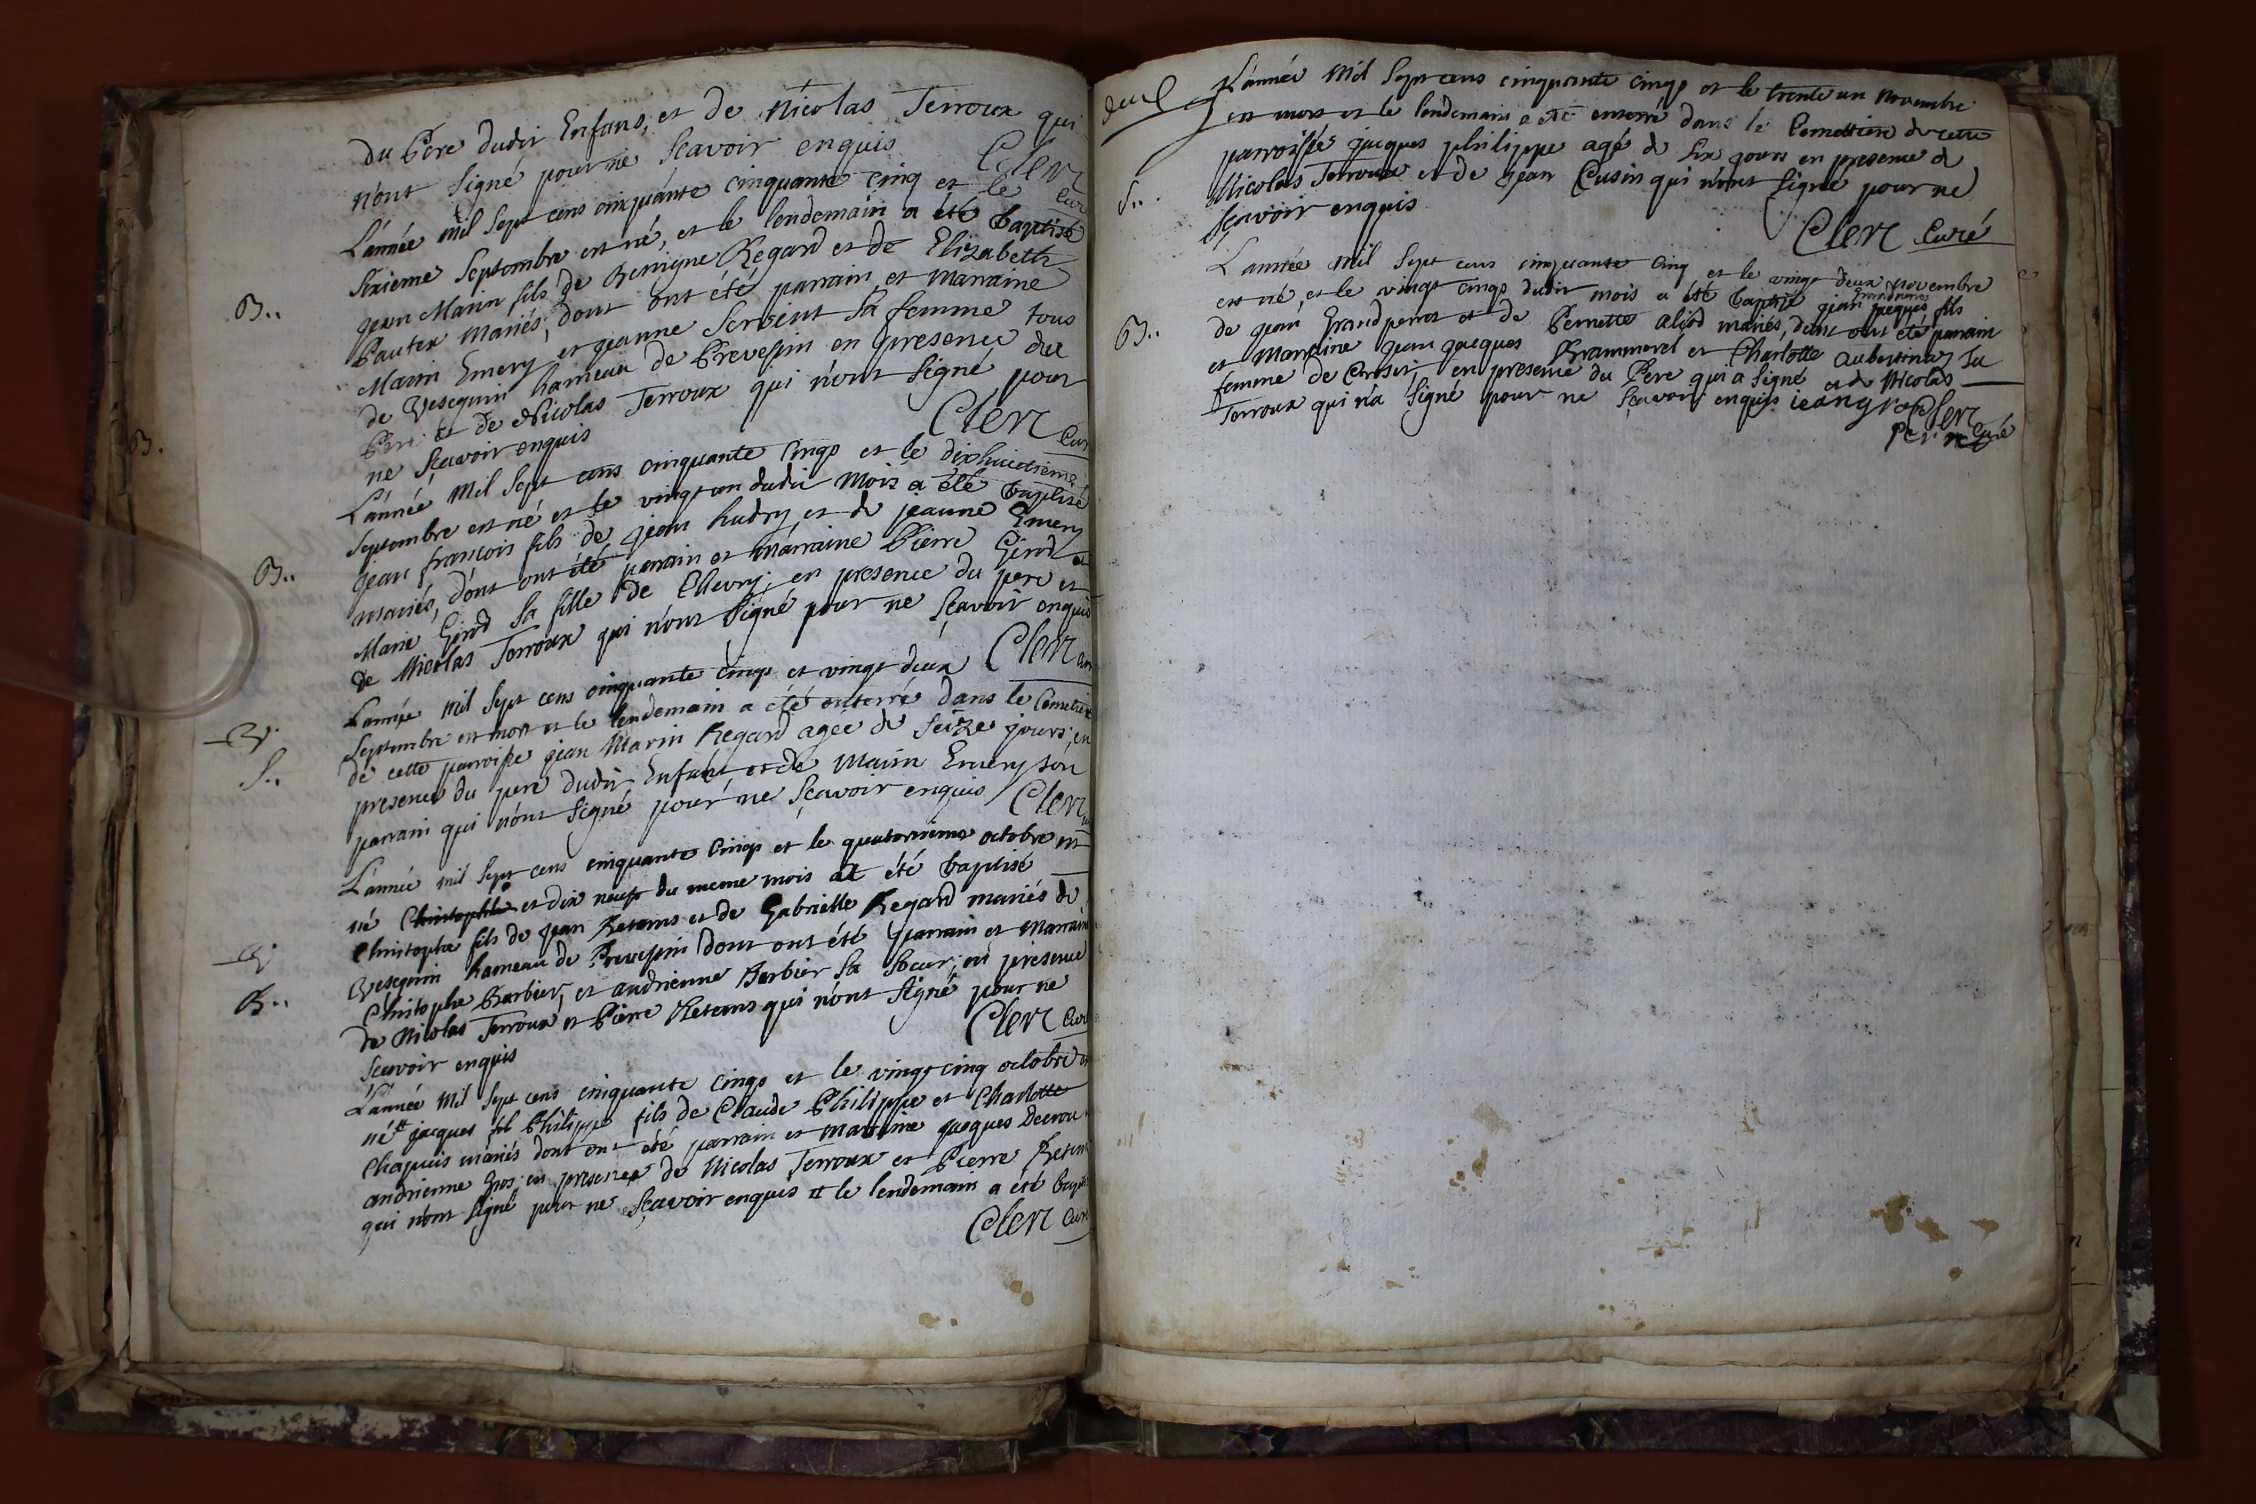 du Pere dudit Enfans, et de Nicolas Terroux qui
n'ont signé pour ne sçavoir enquis
Clerc curé
L'année mil sept cens cinquante cinquante cinq et le
sixieme Septembre est né, et le lendemain a été baptisé
B..
jean Marin fils de Benigne Regard et de Elizabeth
Pautex mariés, dont ont été parrain et marraine
Marin Emery et jeanne Servent sa femme tous
de Vesegnin hameau de Prevessin en presence du
Pere et de Nicolas Terroux qui n'ont signé pour
ne sçavoir enquis
Clerc curé
B.
L'année mil sept cens cinquante cinqs et le dixhuictieme
Septembre est né et le vingt un dudit mois a été baptisé
B..
jean francois fils de jean hudry et de jeanne Emery
mariés, dont ont été parrain et marraine Pierre Girod et
Marie Girod sa fille de Chevry en presence du pere et
de Nicolas Terroux qui n'ont signé pour ne sçavoir enquis
Clerc curé
L'année mil sept cens cinquante cinqs et vingt deux
Septembre est mort et le lendemain a été enterré dans le Cemetiere
S..
de cette parroisse jean Marin Regard agee de seize jours, en
presence du pere dudit Enfant et de Marin Emery son
parrain qui n'ont signé pour ne sçavoir enquis
Clerc
L'année mil sept cens cinquante cinqs et le quatorzieme octobre est
né Christophle et dix neufs du meme mois a été baptisé
Christophe fils de jean Retorns et de Gabrielle Regard mariés de
Vesegnin hameau de Prevessin dont ont été parrain et Marraine
B..
Christophe Barbier, et andrienne Barbier sa soeur, en presence
de Nicolas Terroux et Pierre Retorns qui n'ont signé pour ne
sçavoir enquis
Clerc curé
L'année mil sept cens cinquante cinqs et le vingt cinq octobre est
né # jacques fil Philippe fils de Claude Philippe et Charlotte
Chapuis mariés dont ont été parrain et marraine jacques Decrou
andrienne Gros en presence de Nicolas Terroux et Pierre Retorns
qui n'ont signé pour ne sçavoir enquis # le lendemain a été bapt
Clerc curé
L'année mil sept cens cinquante cinqs et le trente un Novembre
est mort et le lendemain a été enterré dans le Cemettiere de cette
parroisse jacques philippe agé de six jours en presence de
S..
Nicolas Terroux et de jean Cusin qui n'ont signé pour ne
sçavoir enquis
Clerc Curé
L'année mil sept cens cinquante cinq et le vingt deux Novembre
est né, et le vingt cinqs dudit mois a été baptisé jean jacques fils
B..
de jean Grandperret et de Pernette aliod mariés, dont ont été parrain
et Marraine jean jacques Brammerel et Charlotte aubertin sa
femme de Crosir en presence du Pere qui a signé et de Nicolas
Terroux qui n'a signé pour ne sçavoir enquis
Clerc
Curé